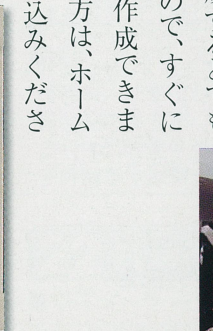 ので、すぐに
作成できま
方は、ホーム
込みくださ